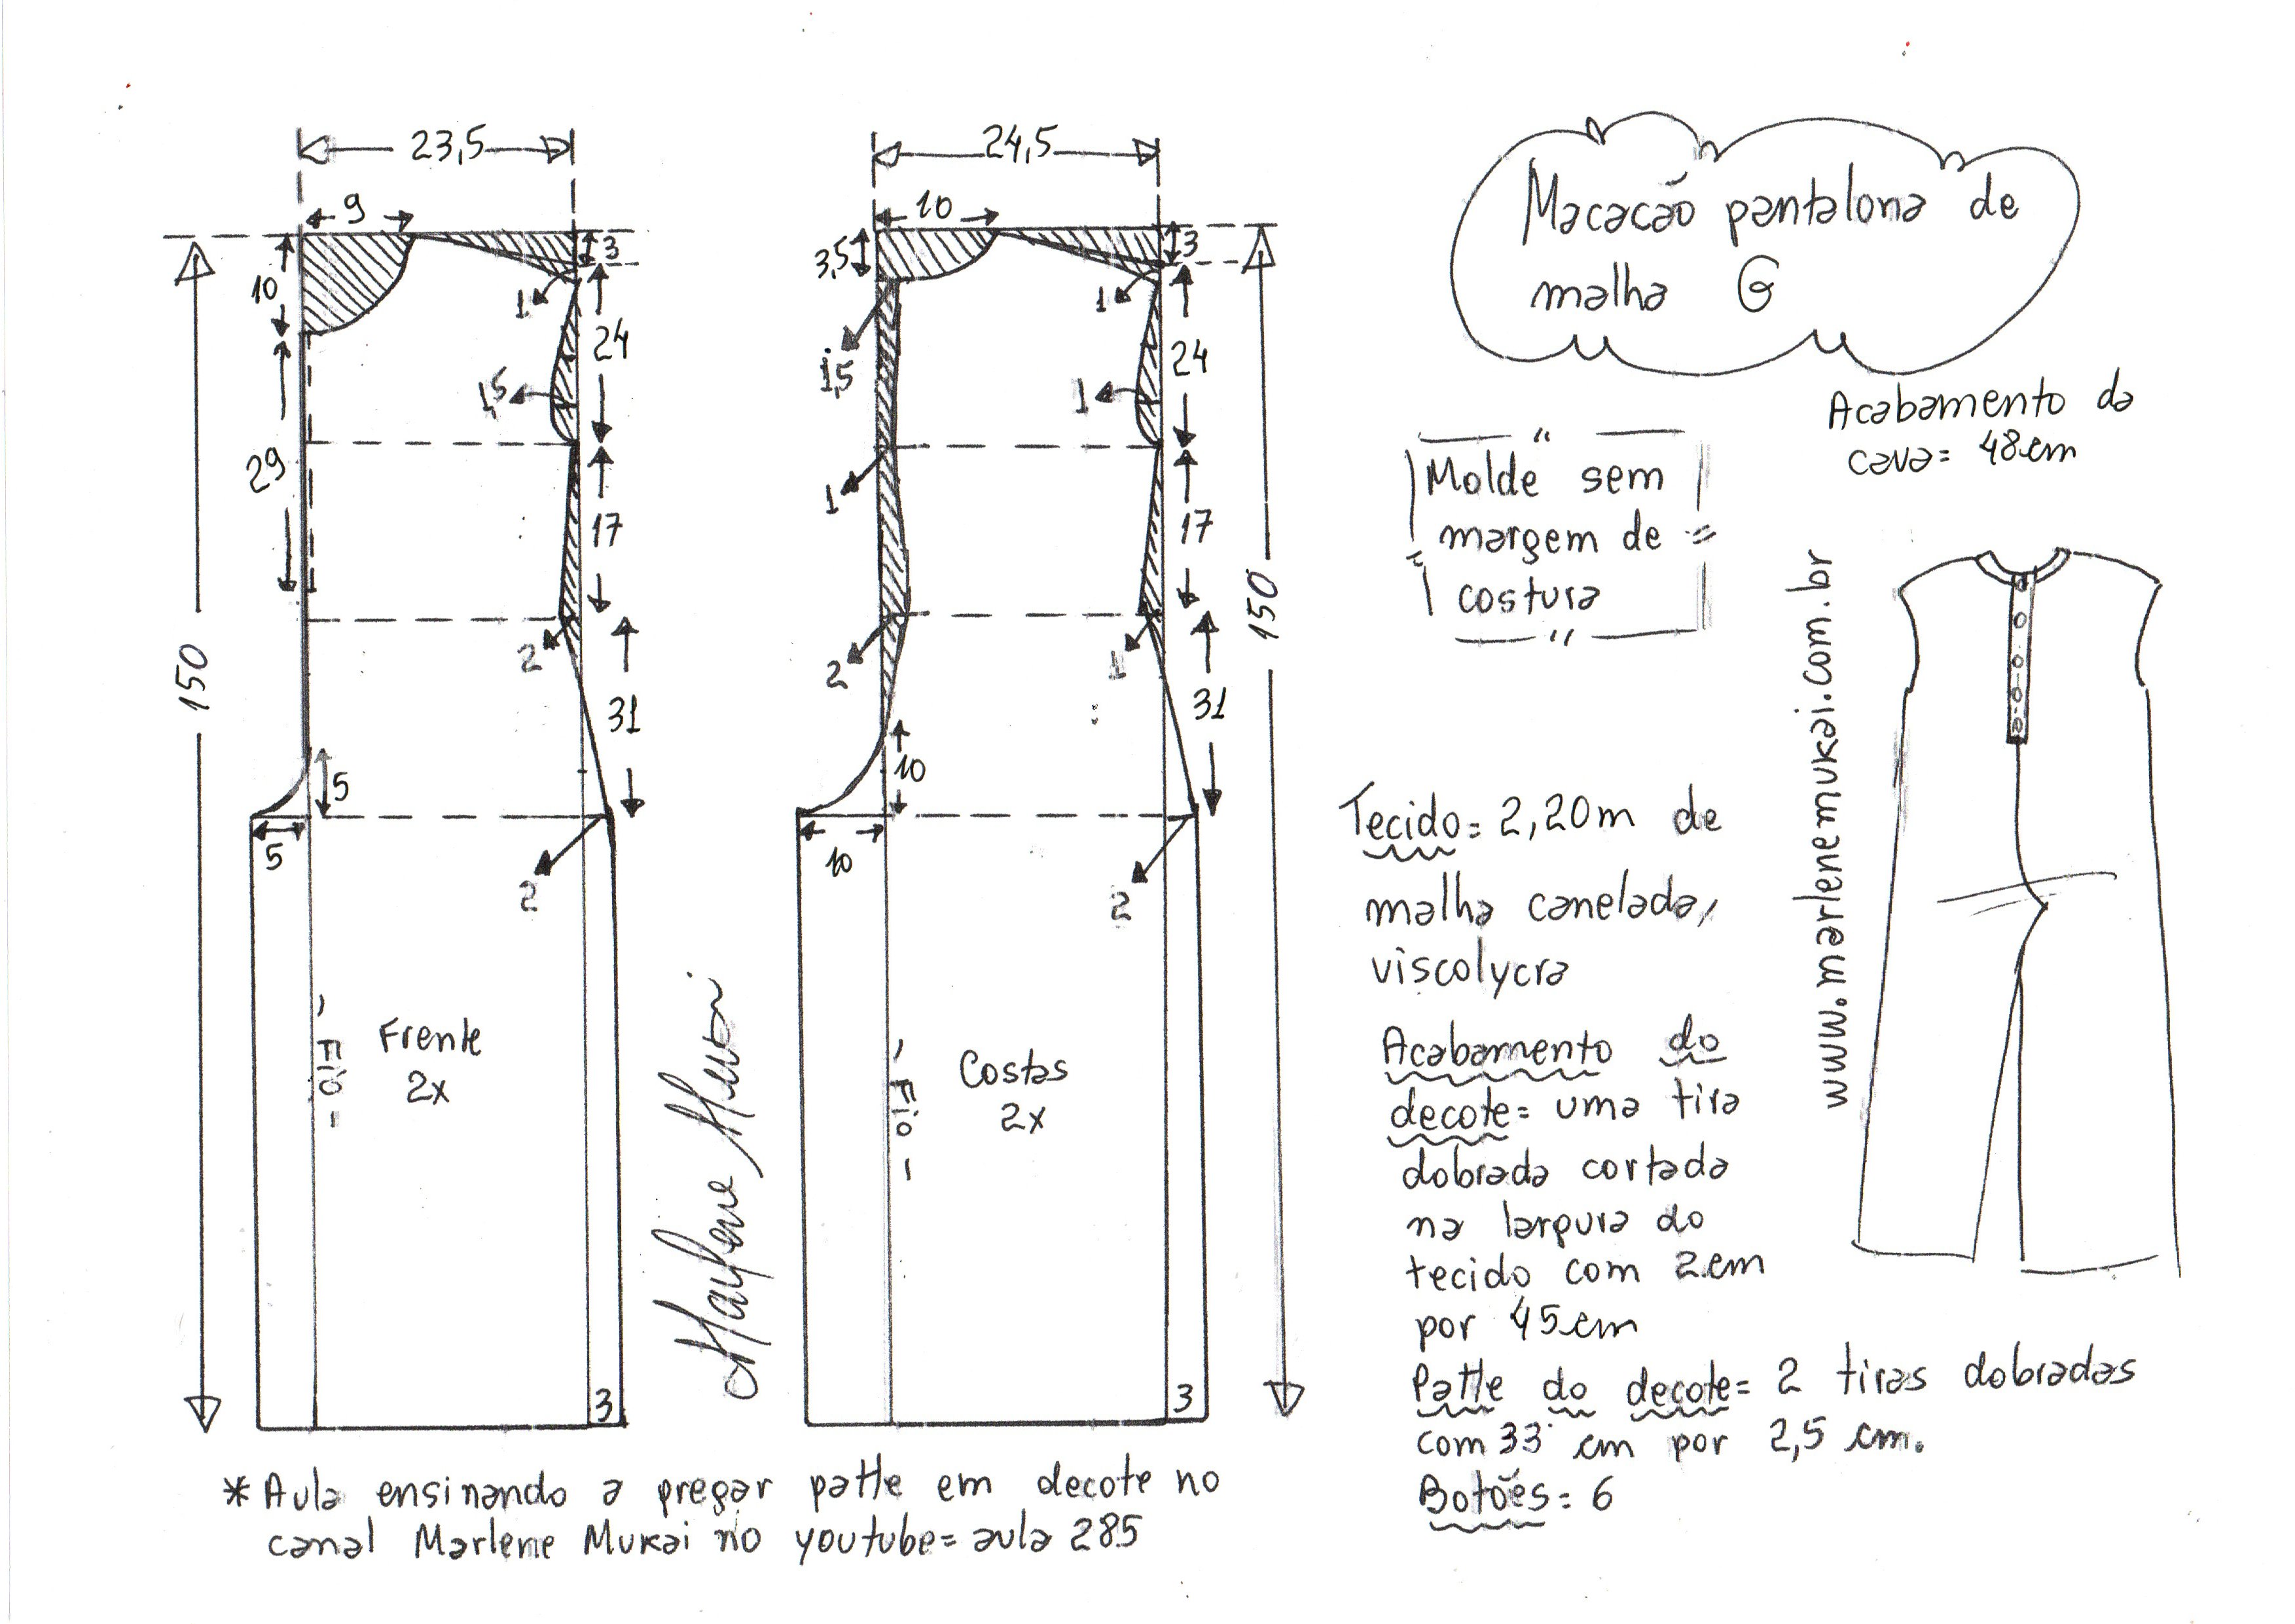 23,5
9
10
3
1
24
1,5
29
17
2
150
31
5
5
2
Frente
2x
Fio
3
24,5
10
3,5
3
1
1,5
24
1
1
17
2
1
150
31
10
10
2
Costas
2x
Fio
3
Marlene Mukai
Macacão pantalona de
malha G
Acabamento da
cava= 48cm
Molde sem
margem de
costura
www.marlenemukai.com.br
Tecido= 2,20m de
malha canelada,
viscolycra
Acabamento do
decote= uma tira
dobrada cortada
na largura do
tecido com 2cm
por 45cm
Patte do decote= 2 tiras dobradas
com 33 cm por 2,5 cm.
Botões= 6
*Aula ensinando a pregar patte em decote no
canal Marlene Mukai no youtube= aula 285